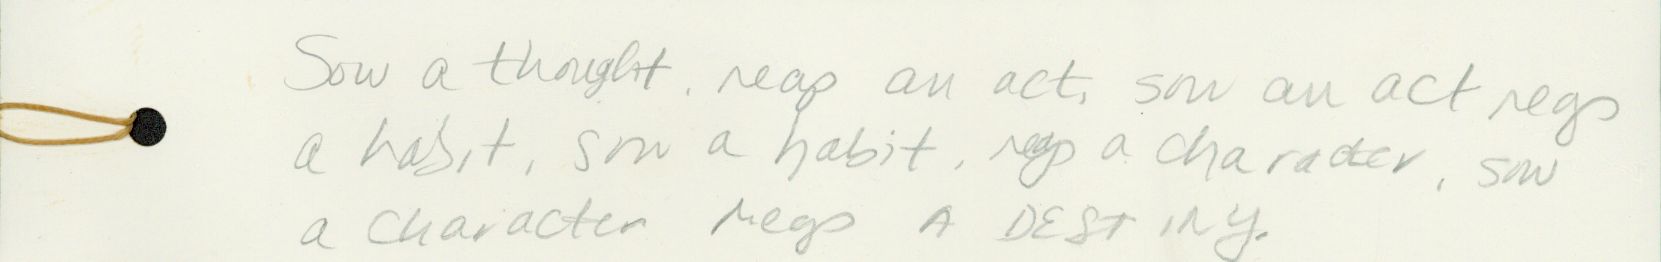 Sow a thought, reap an act, sow an act reap
a habit, sow a habit, reap a character, sow
a character reap A DESTINY.